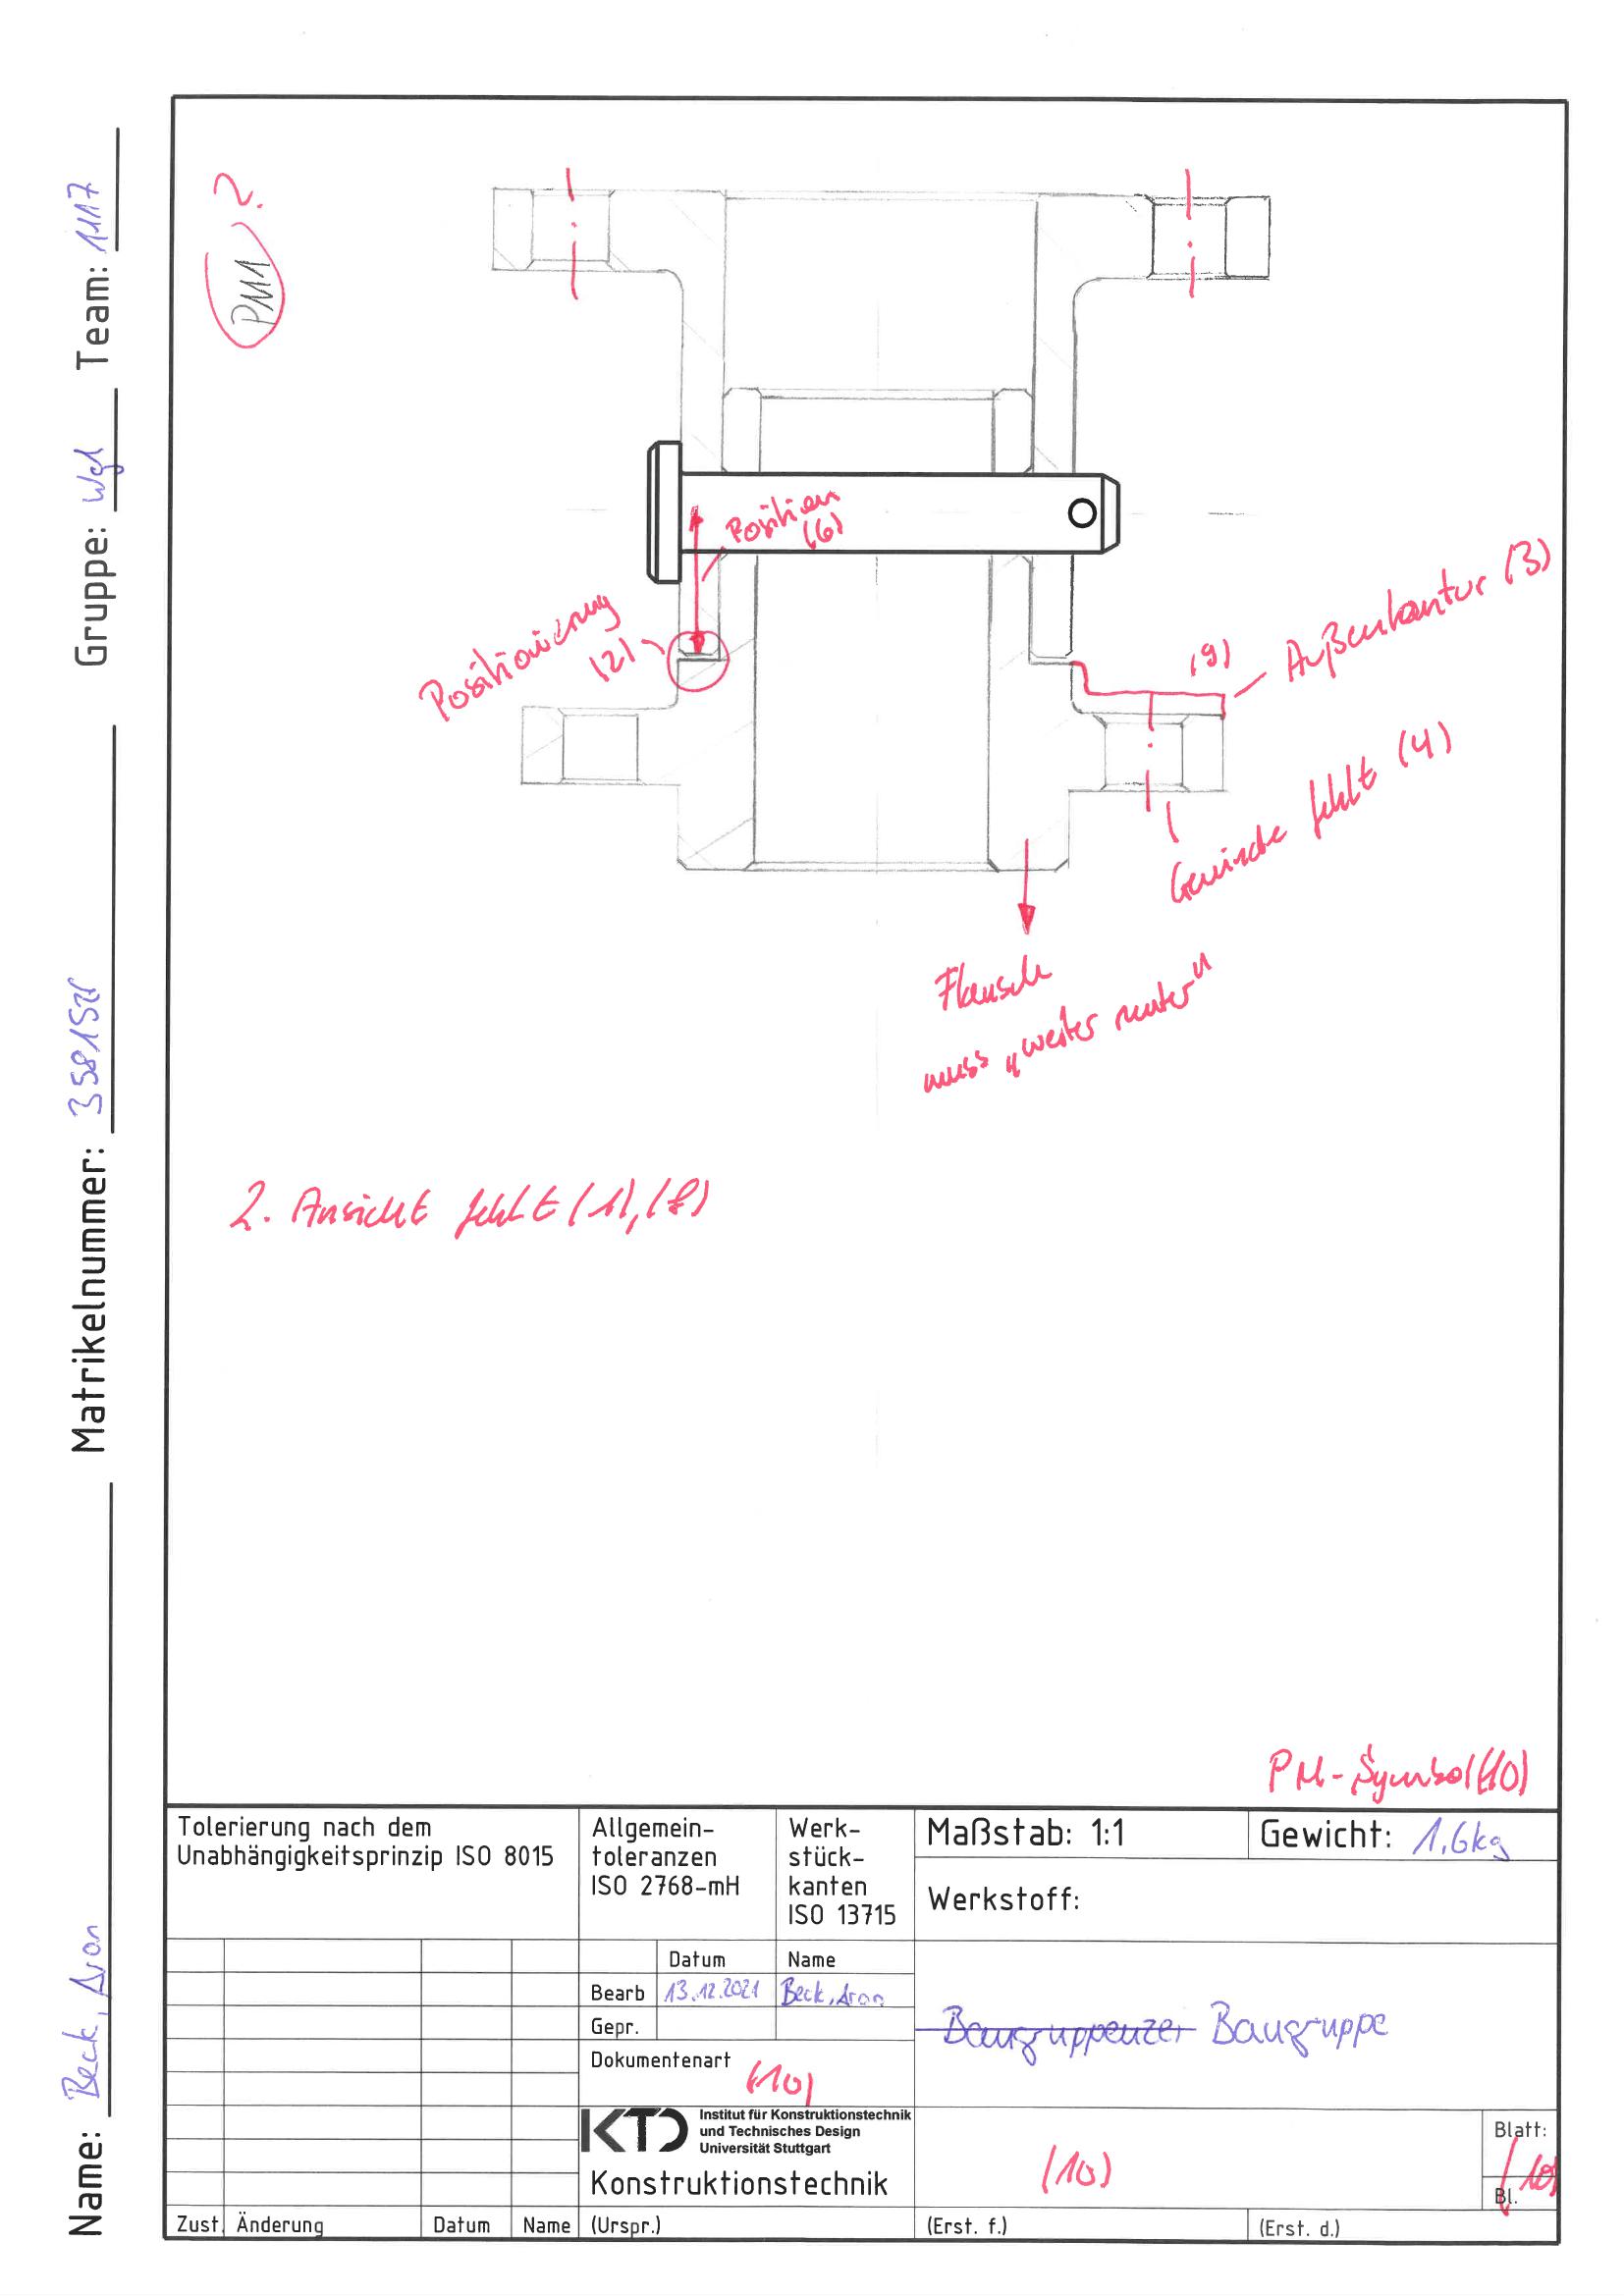 Name: Beck, Aron
Matrikelnummer: 3581526
Gruppe: Wgl
Team: 1117
PM1, 2.
Position
(6)
Positionierung
(2)
(9)
Außenkontur (3)
Gewinde fehlt (4)
Flansch
muss „weiter runter"
2. Ansicht fehlt (1), (8)
PM-Symbol (10)
Tolerierung nach dem
Unabhängigkeitsprinzip ISO 8015
Allgemein-
toleranzen
ISO 2768-mH
Werk-
stück-
kanten
ISO 13715
Maßstab: 1:1
Gewicht: 1,6kg
Werkstoff:
Datum Name
Bearb 13.12.2021 Beck, Aron
Gepr.
Baugruppenzei Baugruppe
Dokumentenart
(10)
KTD
Institut für Konstruktionstechnik
und Technisches Design
Universität Stuttgart
Konstruktionstechnik
(10)
Blatt:
/ (10)
Bl.
Zust. Änderung Datum Name (Urspr.) (Erst. f.) (Erst. d.)